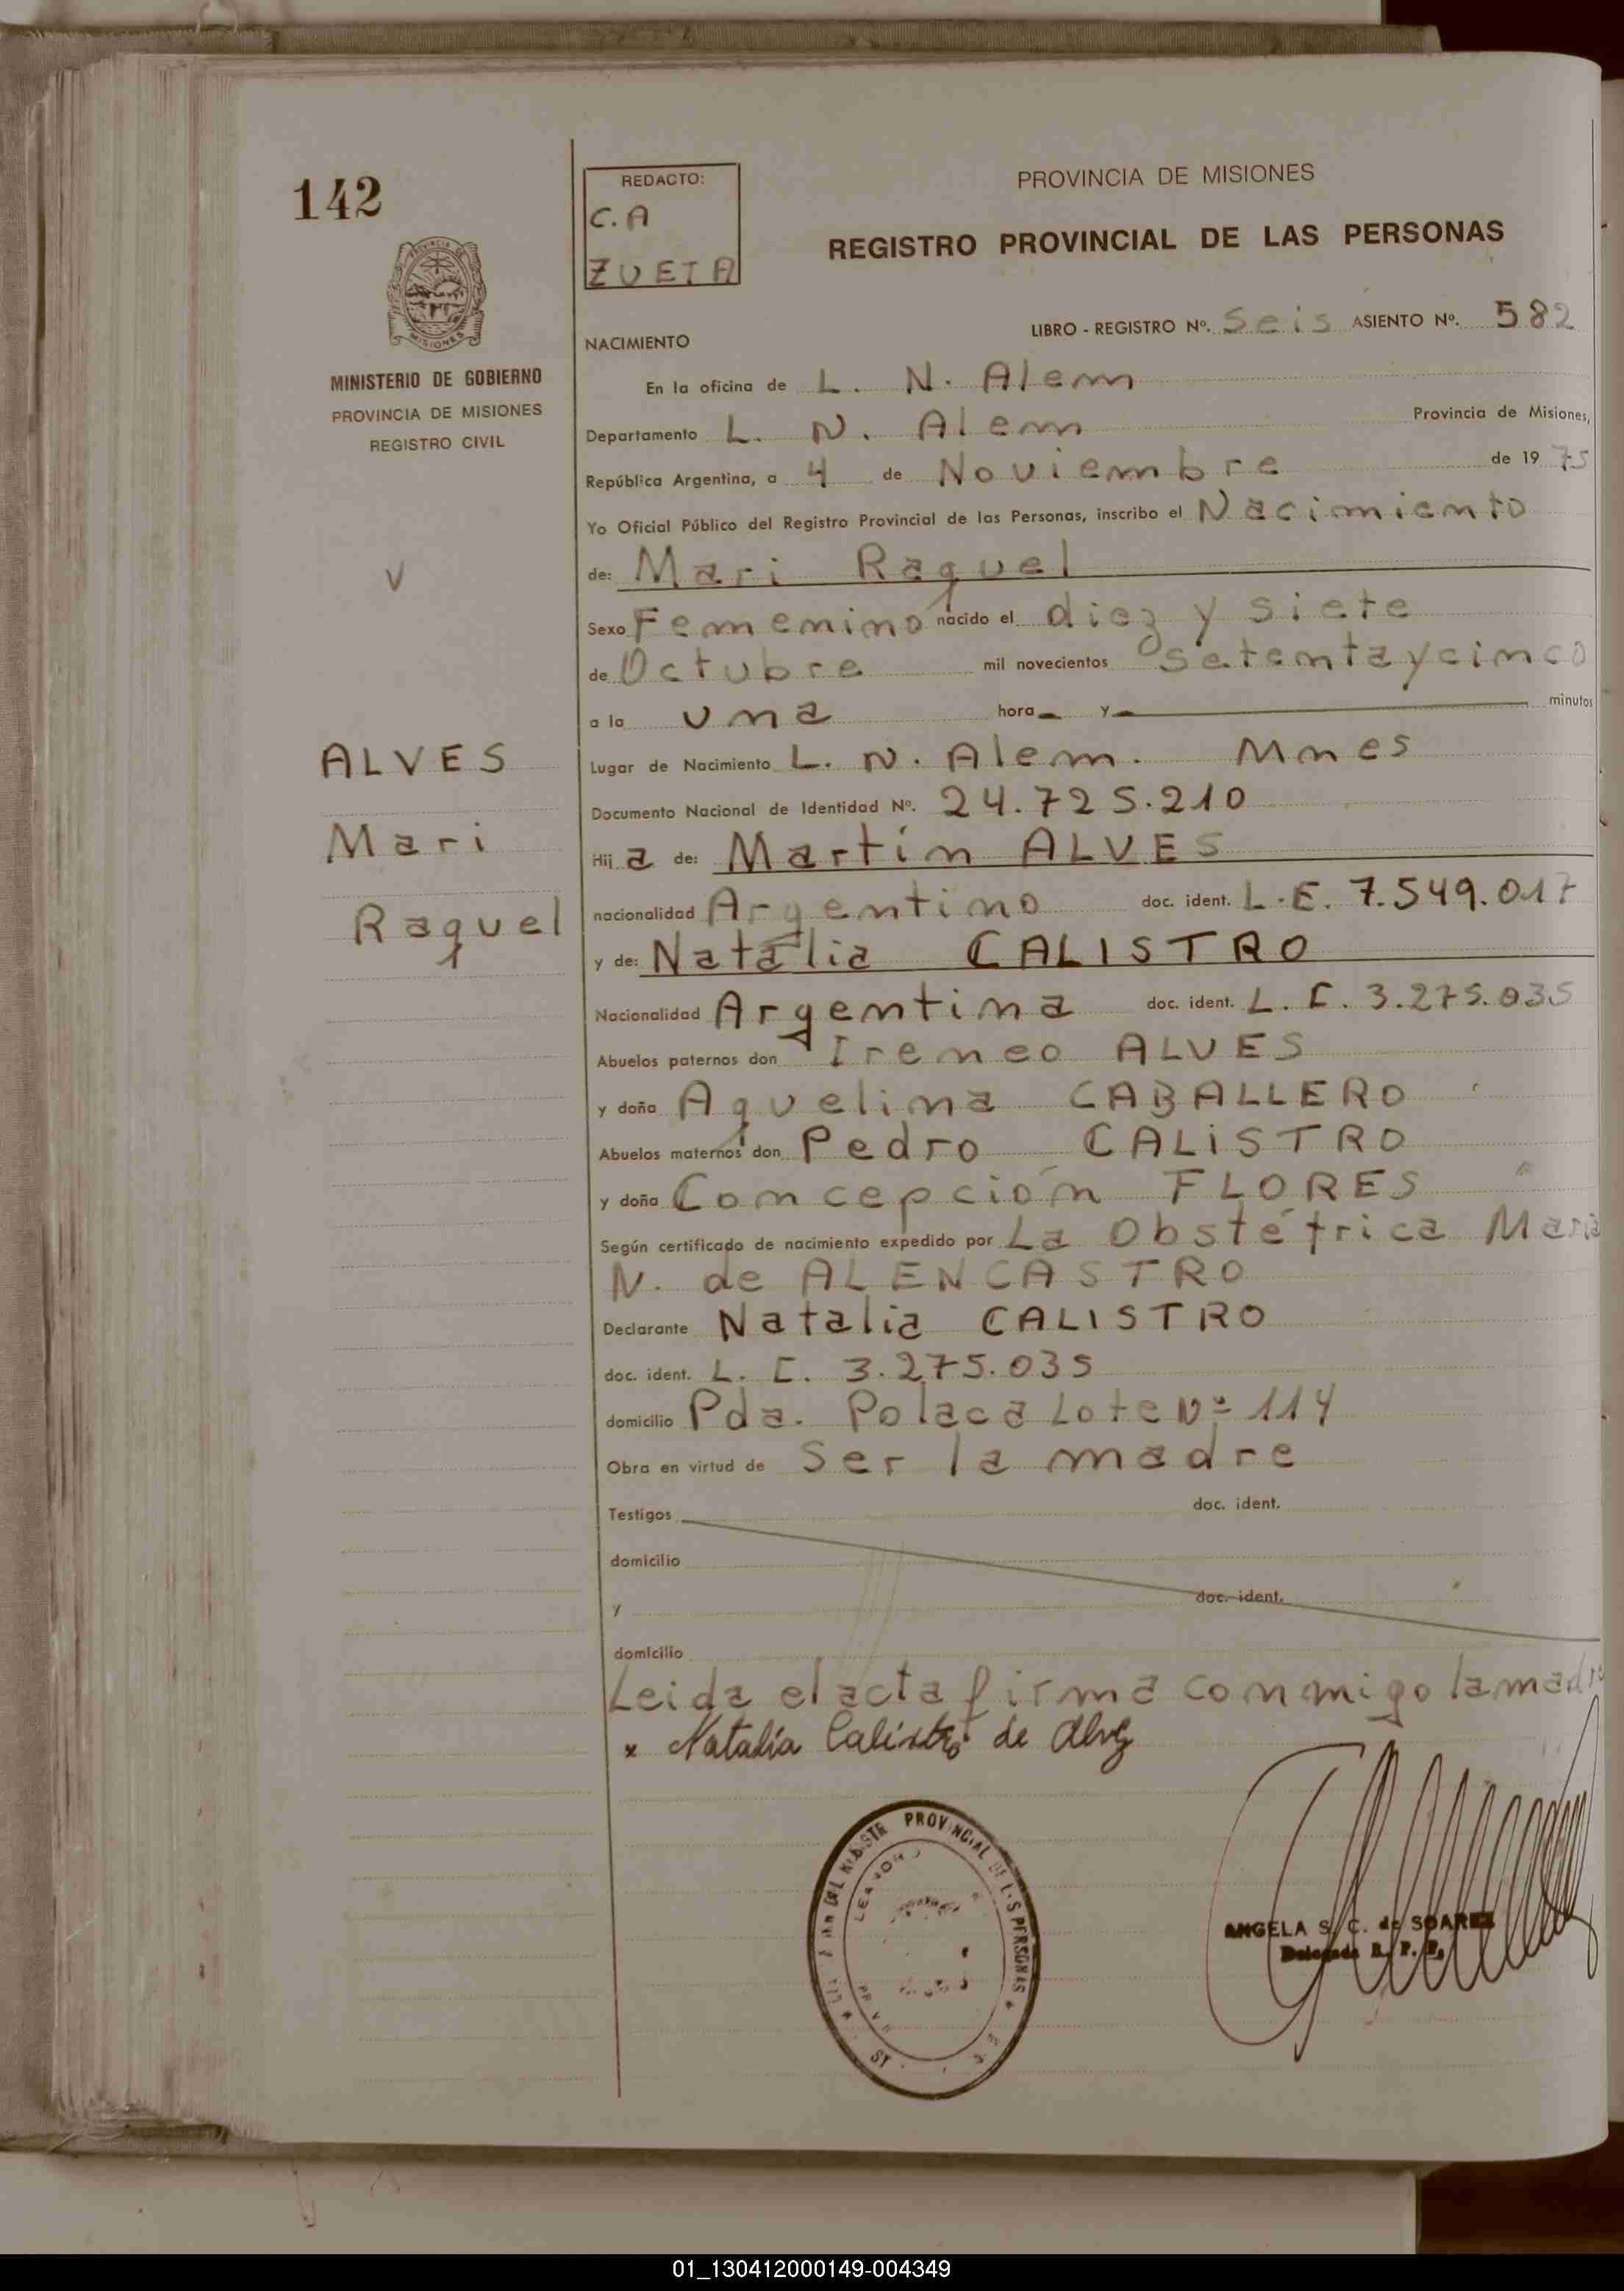 142
REDACTO:
C. A
ZUETA
PROVINCIA DE MISIONES
REGISTRO PROVINCIAL DE LAS PERSONAS
MINISTERIO DE GOBIERNO
PROVINCIA DE MISIONES
REGISTRO CIVIL
LIBRO - REGISTRO Nº. Seis ASIENTO Nº. 582
NACIMIENTO
En la oficina de L. N. Alem
Departamento L. N. Alem Provincia de Misiones,
República Argentina, a 4 de Noviembre de 19 75
Yo Oficial Público del Registro Provincial de las Personas, inscribo el Nacimiento
de: Mari Raquel
V
Sexo Femenino nacido el diez y siete
de Octubre mil novecientos setentaycinco
a la una hora y minutos
ALVES
Mari
Raquel
Lugar de Nacimiento L. N. Alem. Mnes
Documento Nacional de Identidad Nº. 24.725.210
Hij a de: Martín ALVES
nacionalidad Argentino doc. ident. L.E. 7.549.017
y de: Natalia CALISTRO
Nacionalidad Argentina doc. ident. L. C. 3.275.035
Abuelos paternos don Ireneo ALVES
y doña Aquelina CABALLERO
Abuelos maternos don Pedro CALISTRO
y doña Concepción FLORES
Según certificado de nacimiento expedido por La Obstétrica Maria
N. de ALENCASTRO
Declarante Natalia CALISTRO
doc. ident. L. C. 3.275.035
domicilio Pda. Polaca Lote Nº 114
Obra en virtud de Ser la madre
Testigos doc. ident.
domicilio
y doc. ident.
domicilio
Leida el acta firma conmigo la madre
x Natalia Calistro de Alvez
PROVINCIAL DE L S PERSONAS
LEANDRO
ANGELA S. C. de SOAREZ
Delegada R. P. P.
01_130412000149-004349